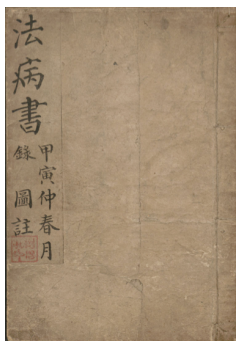 法病書
甲寅仲春月
錄 圖註